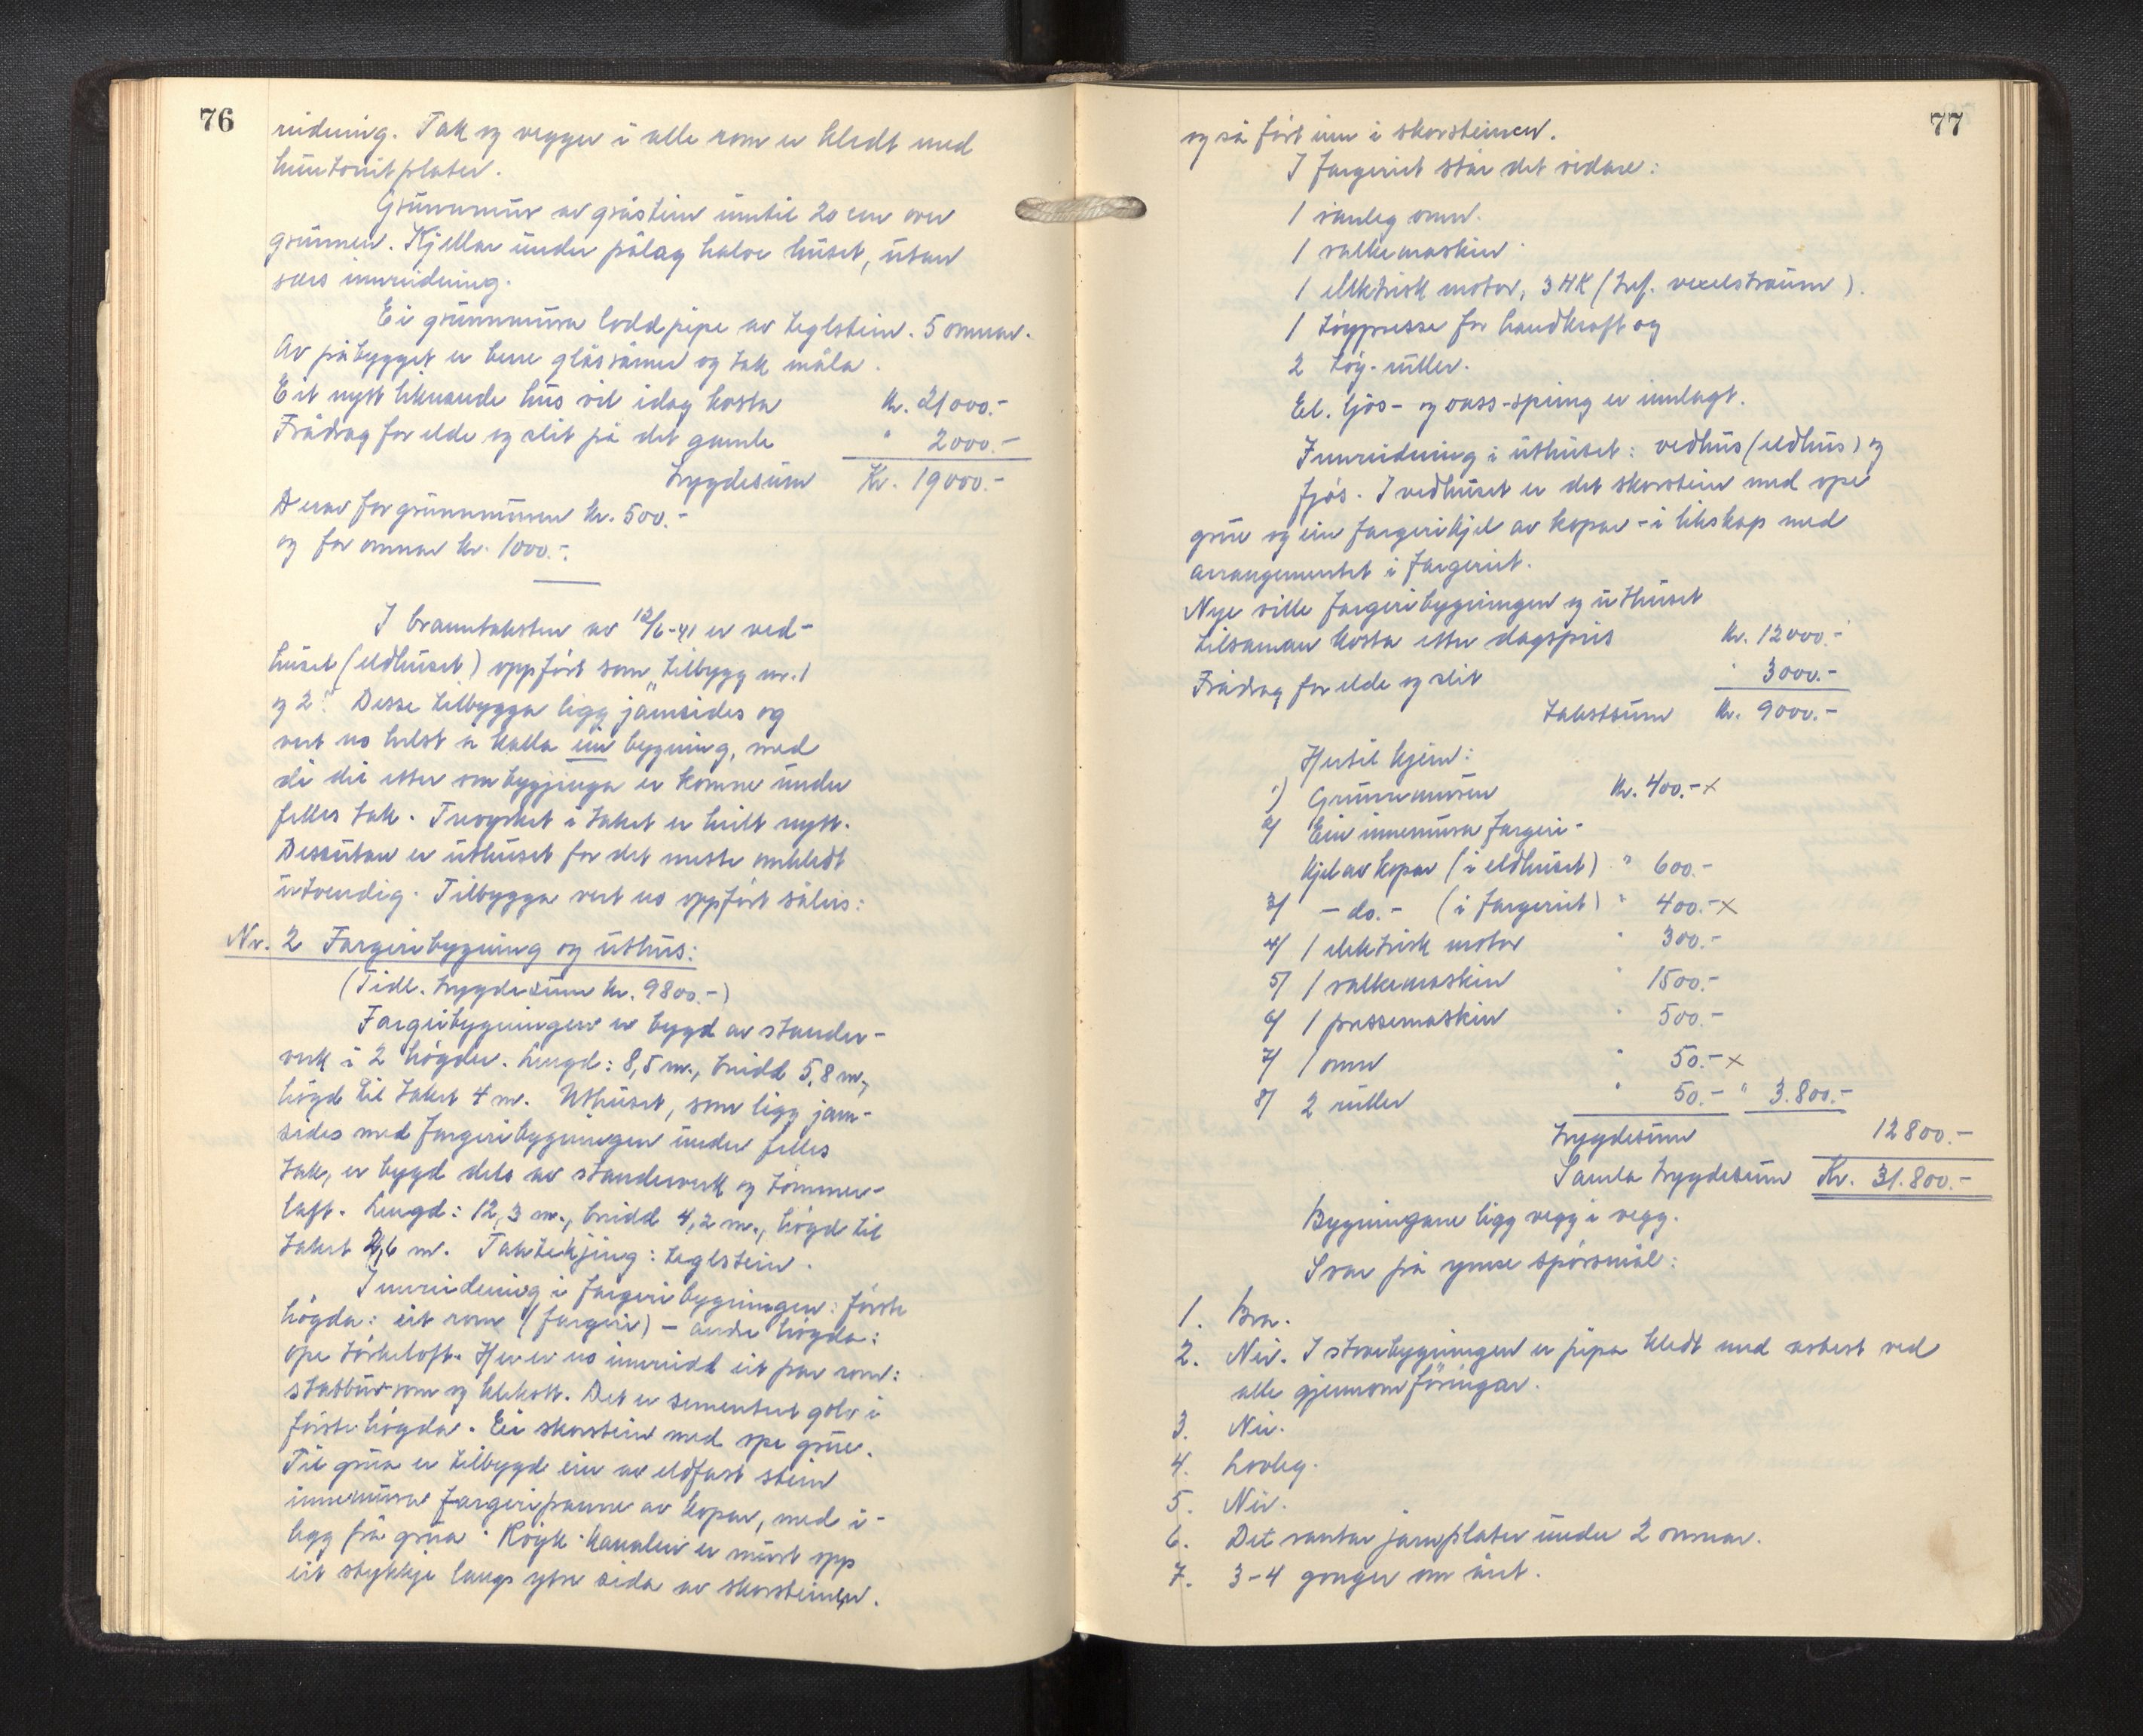 76
reidning. Tak og vegger i alle rom er kledt med
huntonitplater.
Grunnmur av gråstein inntil 20 cm over
grunnen. Kjellar under pålag halve huset, utan
særs innreidning.
Ei grunnmura loddpipe av teglstein. 5 omnar.
Av påbygget er berre glasrâmer og tak måla.
Eit nytt liknande hus vil idag kosta Kr. 21000.-
Frådrag for elde og slit på det gamle " 2000.-
trygdesum Kr. 19000.-
Derav for grunnmuren kr. 500.-
og for omnar kr. 1000.-.
I branntaksten av 12/6-41 er ved-
huset (eldhuset) oppført som "tilbygg nr. 1
og 2". Desse tilbygga ligg jamsides og
vert no helst å kalla ein bygning, med
di dei etter ombygjinga er komne under
felles tak. Treverket i taket er heilt nytt.
Dessutan er uthuset for det meste omkledt
utvendig. Tilbygga vert no oppført såleis:
Nr. 2 Fargeribygning og uthus:
(Tidl. trygdesum kr. 9800.-)
Fargeribygningen er bygd av stander-
verk i 2 høgder. Lengd: 8,5 m., breidd 5,8 m.,
høgd til taket 4 m. Uthuset, som ligg jam-
sides med fargeribygningen under felles
tak, er bygd dels av standerverk og tømmer-
laft. Lengd: 12,3 m., breidd 4,2 m., høgd til
taket 2,6 m. Taktekjing: teglstein.
Innreidning i fargeribygningen: første
høgda: eit rom (fargeri) - andre høgda:
ope tørkeloft. Her er no innreidd eit par rom:
stabbursrom og klekott. Det er sementert golv i
første høgda. Ein skorstein med ope grue.
Til grua er tilbygd ein av eldfast stein
innemura fargeripanne av kopar, med i-
legg frå grua. Røyk-kanalen er murt opp
eit stykkje langs ytre sida av skorsteinen.
77
og så ført inn i skorsteinen.
I fargeriet står det vidare:
1 vanleg omn.
1 valkemaskin.
1 elektrisk motor, 3 HK (tref. vexelstraum).
1 tøypresse for handkraft og
2 tøy-ruller.
El. ljos- og vass-spring er innlagt.
Innreidning i uthuset: vedhus (eldhus) og
fjøs. I vedhuset er det skorstein med ope
grue og ein fargerikjel av kopar - i likskap med
arrangementet i fargeriet.
Nye ville fargeribygningen og uthuset
tilsaman kosta etter dagspris Kr. 12000.-
Frådrag for elde og slit " 3000.-
Takstsum Kr. 9000.-
Hertil kjem:
1) Grunnmuren Kr. 400.- x
2/ Ein innemura fargeri-
kjel av kopar (i eldhuset) " 600.-
3/ - do. - (i fargeriet) " 400.- x
4/ 1 elektrisk motor " 300.-
5/ 1 valkemaskin " 1500.-
6/ 1 pressemaskin " 500.-
7/ 1 omn " 50.- x
8/ 2 ruller " 50.- " 3.800.-
trygdesum 12800.-
Samla trygdesum Kr. 31.800.-
Bygningane ligg vegg i vegg.
Svar på ymse spørsmål:
1. Bra.
2. Nei. I stovebygningen er pipa kledt med asbest ved
alle gjennomføringar.
3. Nei.
4. Lovleg.
5. Nei.
6. Det vantar jarnplater under 2 omnar.
7. 3-4 gonger om året.